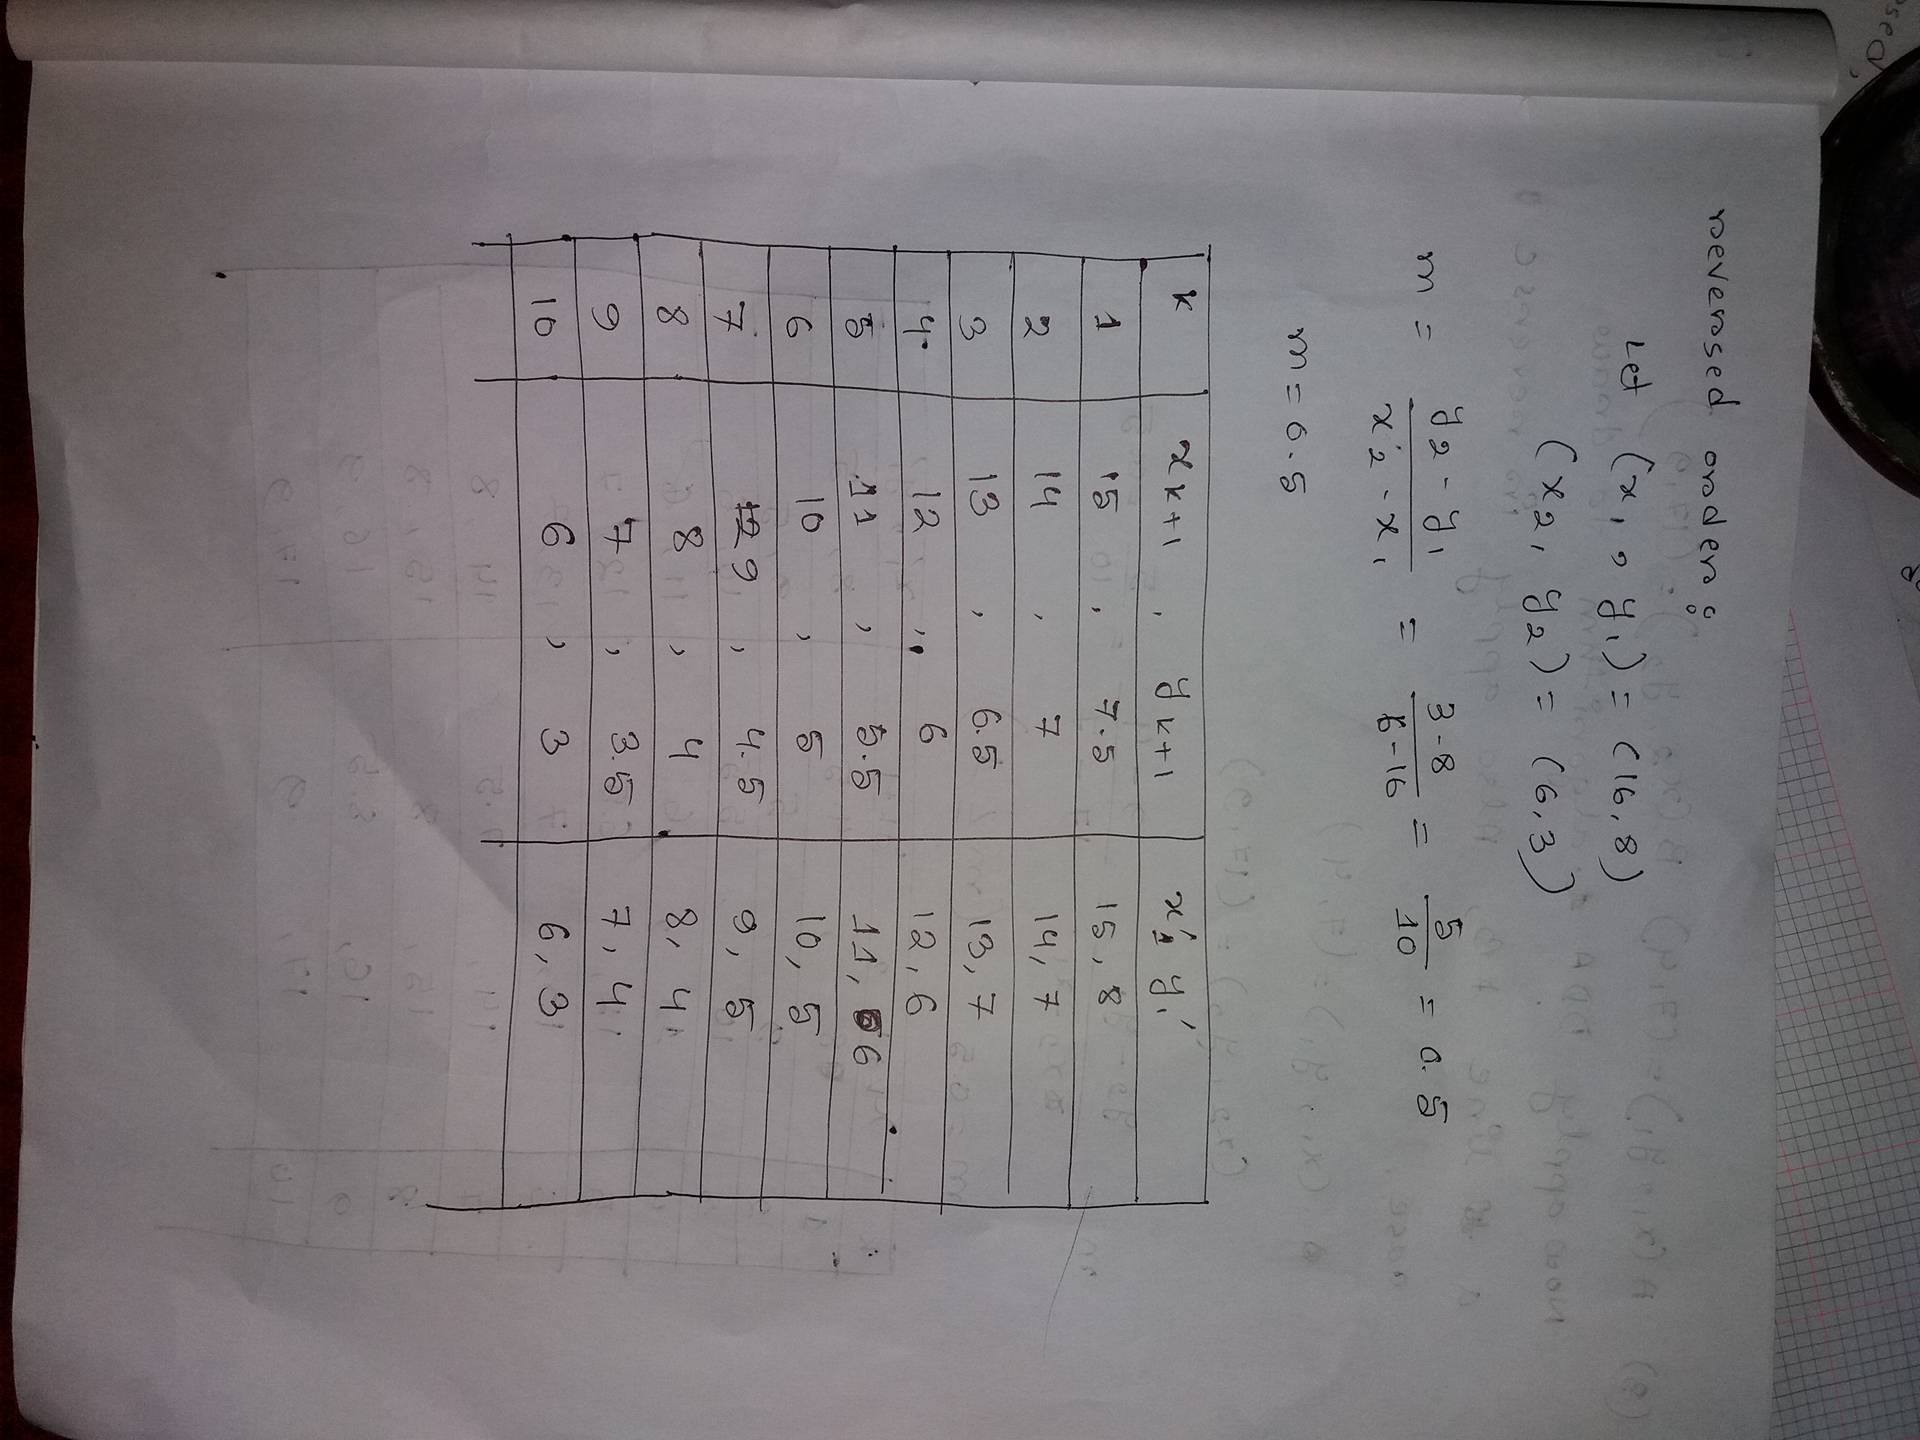 reversed order:
Let (x1, y1) = (16, 8)
(x2, y2) = (6, 3)
m = y2 - y1 / x2 - x1 = 3-8 / 6-16 = 5/10 = 0.5
m = 0.5
k xk+1, yk+1 x', y'
1 15, 7.5 15, 8
2 14, 7 14, 7
3 13, 6.5 13, 7
4 12, 6 12, 6
5 11, 5.5 11, 6
6 10, 5 10, 5
7 9, 4.5 9, 5
8 8, 4 8, 4
9 7, 3.5 7, 4
10 6, 3 6, 3